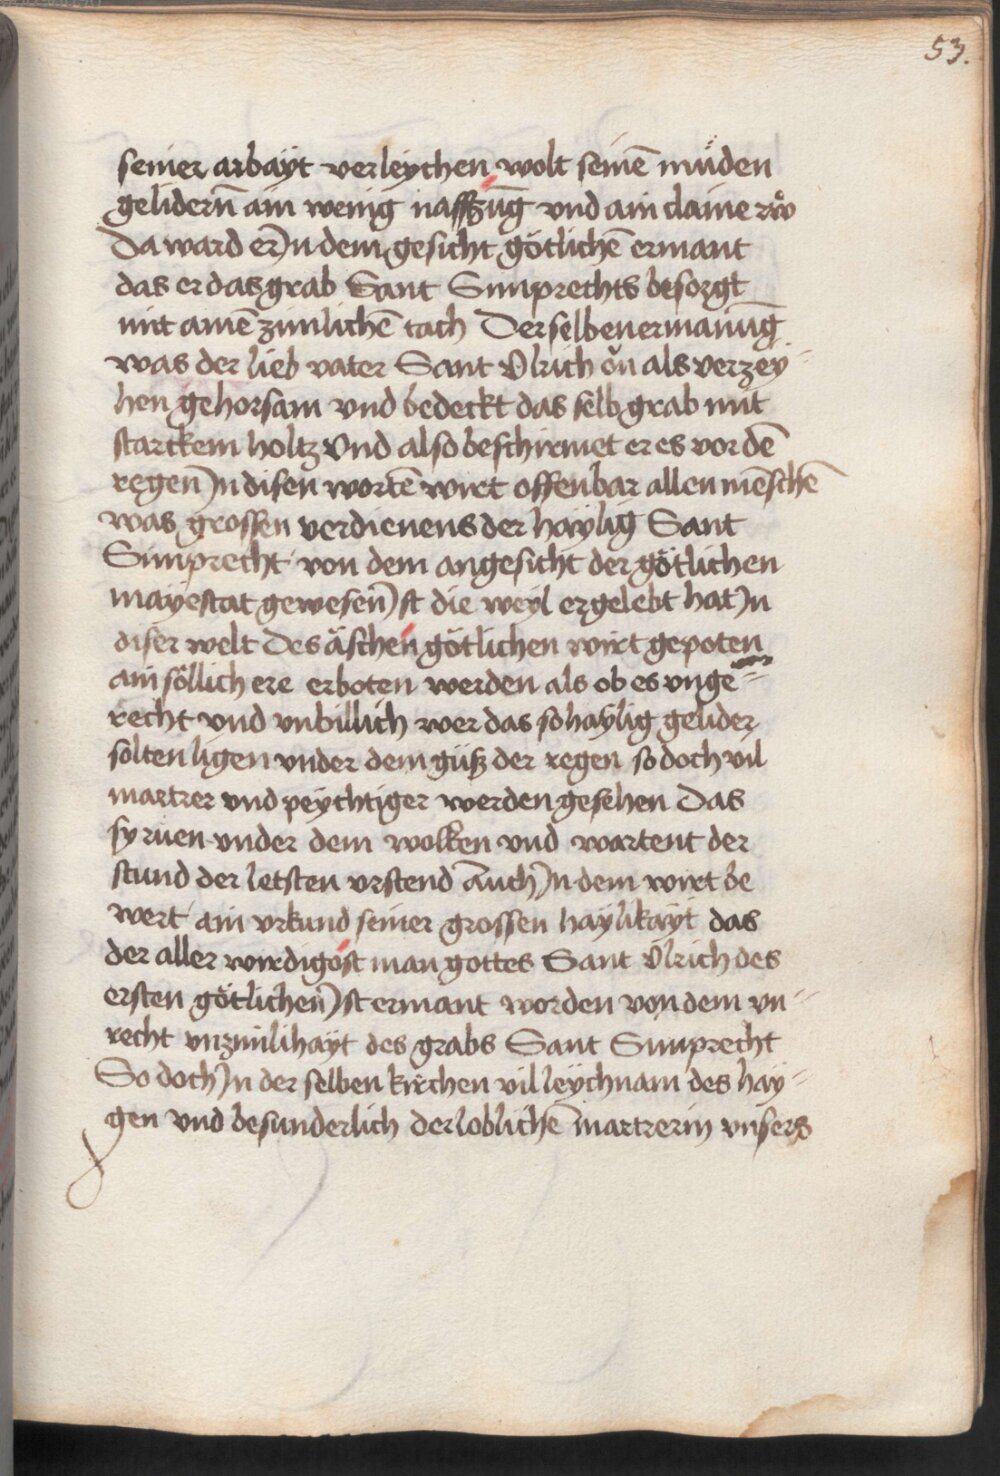 53.
seiner arbayt verleychen wolt seinē müden
gelidern̄ ain wenig naffzūg vnd ain claine rẘ
Da ward er Jn dem gesicht götlichē ermant
das er das grab Sant Simprechts besorgt
mit ainē zimlichē tach Der selben ermanūg
was der lieb vater Sant Vlrich on als verzey
hen gehorsam vnd bedeckt das selb grab mit
starckem holtz Vnd also beschirmet er es vor dē
regen Jn disen wortē wirt offenbar allen mēschē
was grossen verdienens der haylig Sant
Simprecht von dem angesicht der götlichen
mayestat gewesen Jst die weyl er gelebt hat Jn
diser welt Des äschen götlichen wirt gepoten
ain söllich ere erboten werden als ob es vnge
recht vnd vnbillich wer das so haylig gelider
solten ligen vnder dem güß der regen so doch vil
martrer vnd peychtiger werden gesehen Das
sy rüen vnder dem wolken vnd wartent der
stund der letsten vrstend Auch Jn dem wirt be
wert ain vrkund seiner grossen haylikayt das
der aller wirdigost man gottes Sant Vlrich des
ersten götlichen Jst ermant worden von dem vn
recht vnzimlihayt des grabs Sant Simprecht
So doch Jn der selben kirchen vil leychnam des hay
gen vnd besunderlich der loblichē martrerin vnsers